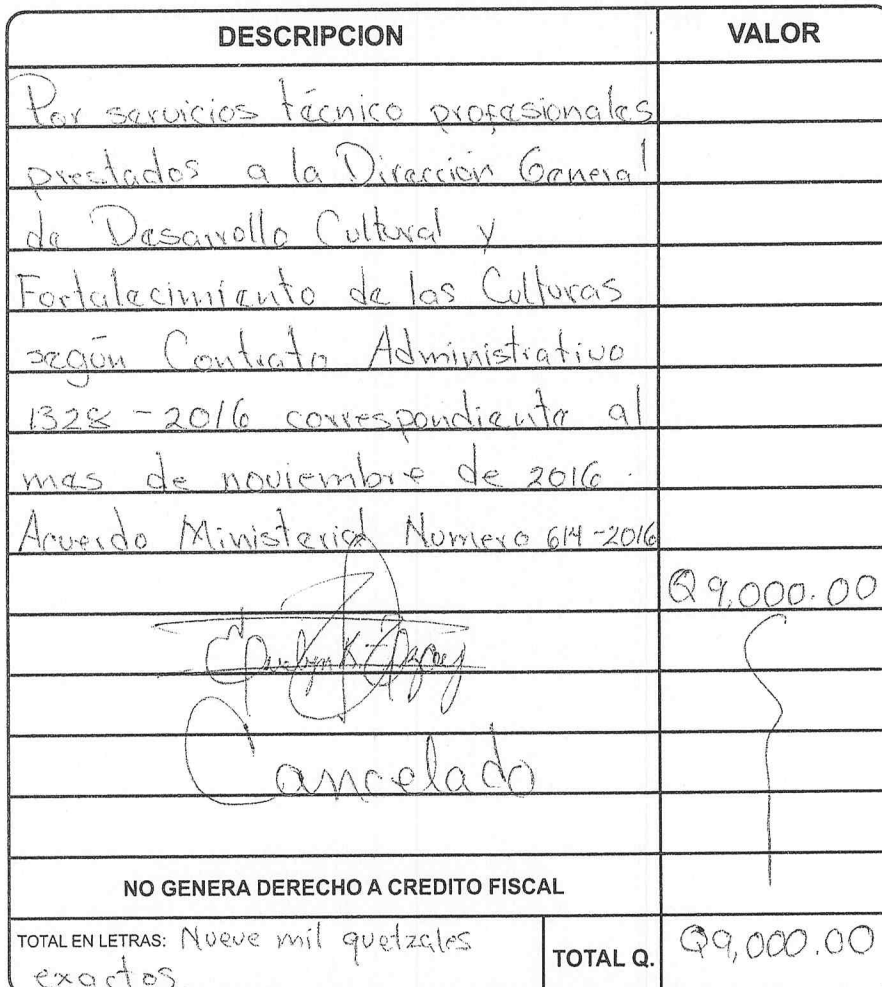 DESCRIPCION VALOR
Por servicios técnico profesionales
prestados a la Dirección General
de Desarrollo Cultural y
Fortalecimiento de las Culturas
según Contrato Administrativo
1328-2016 correspondiente al
mes de noviembre de 2016.
Acuerdo Ministerial Numero 614-2016
Q9,000.00
Cancelado
NO GENERA DERECHO A CREDITO FISCAL
TOTAL EN LETRAS: Nueve mil quetzales
exactos
TOTAL Q. Q9,000.00